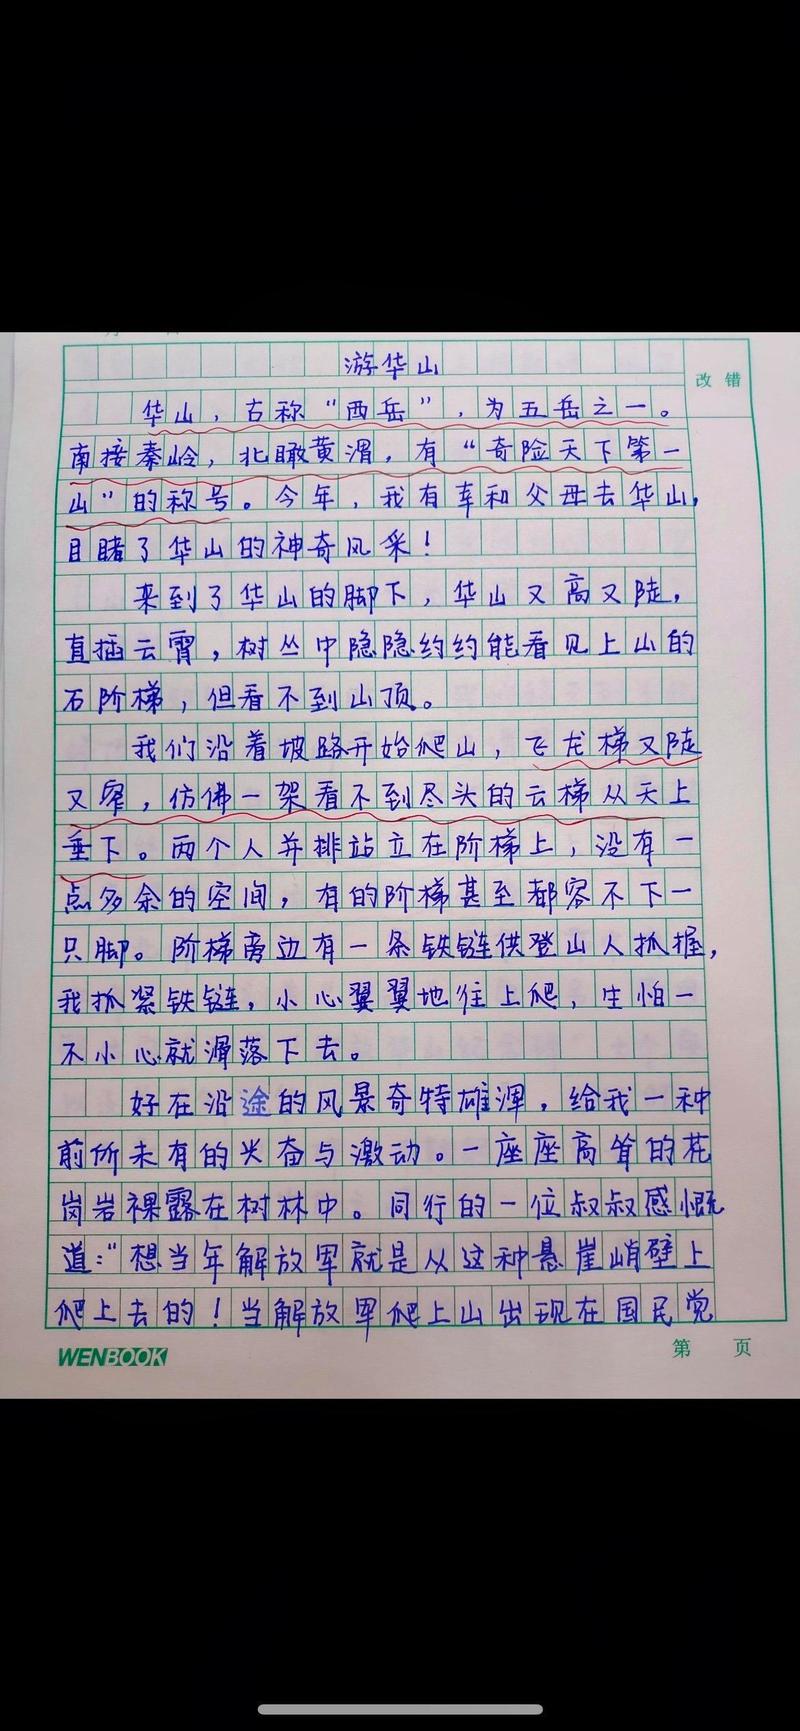 游华山
改错
华山，古称“西岳”，为五岳之一。
南接秦岭，北瞰黄渭，有“奇险天下第一
山”的称号。今年，我有幸和父母去华山，
目睹了华山的神奇风采！
来到了华山的脚下，华山又高又陡，
直插云霄，树丛中隐隐约约能看见上山的
石阶梯，但看不到山顶。
我们沿着坡路开始爬山，飞龙梯又陡
又窄，仿佛一架看不到尽头的云梯从天上
垂下。两个人并排站立在阶梯上，没有一
点多余的空间，有的阶梯甚至都容不下一
只脚。阶梯旁边有一条铁链供登山人抓握，
我抓紧铁链，小心翼翼地往上爬，生怕一
不小心就滑落下去。
好在沿途的风景奇特雄浑，给我一种
前所未有的兴奋与激动。一座座高耸的花
岗岩裸露在树林中。同行的一位叔叔感慨
道：“想当年解放军就是从这种悬崖峭壁上
爬上去的！当解放军爬上山出现在国民党
WENBOOK
第 页